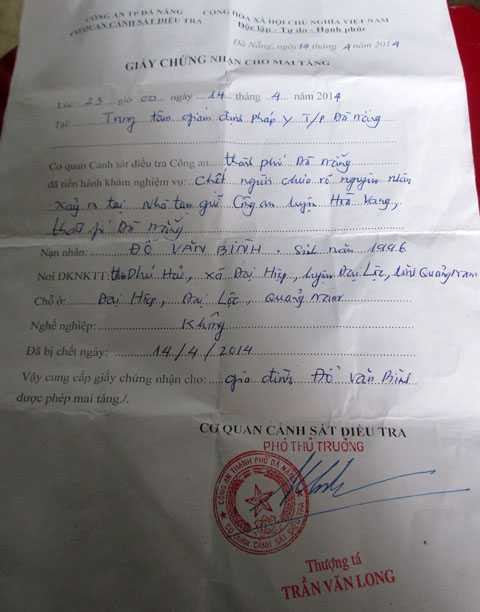 CÔNG AN TP ĐÀ NẴNG
CƠ QUAN CẢNH SÁT ĐIỀU TRA
CỘNG HÒA XÃ HỘI CHỦ NGHĨA VIỆT NAM
Độc lập - Tự do - Hạnh phúc
Đà Nẵng, ngày 14 tháng 4 năm 2014
GIẤY CHỨNG NHẬN CHO MAI TÁNG
Lúc 23 giờ 00 ngày 14 tháng 4 năm 2014
Tại: Trung tâm giám định pháp y T/p Đà Nẵng
Cơ quan Cảnh sát điều tra Công an thành phố Đà Nẵng
đã tiến hành khám nghiệm vụ: Chết người chưa rõ nguyên nhân
xảy ra tại Nhà tạm giữ Công an huyện Hoà Vang,
thành phố Đà Nẵng
Nạn nhân: ĐỖ VĂN BÌNH. Sinh năm 1996
Nơi ĐKNKTT: thôn Phú Hải, xã Đại Hiệp, huyện Đại Lộc, tỉnh Quảng Nam
Chỗ ở: Đại Hiệp, Đại Lộc, Quảng Nam
Nghề nghiệp: Không
Đã bị chết ngày: 14/4/2014
Vậy cung cấp giấy chứng nhận cho: gia đình Đỗ Văn Bình
được phép mai táng./.
CƠ QUAN CẢNH SÁT ĐIỀU TRA
PHÓ THỦ TRƯỞNG
CÔNG AN THÀNH PHỐ ĐÀ NẴNG
CƠ QUAN CẢNH SÁT ĐIỀU TRA
Thượng tá
TRẦN VĂN LONG